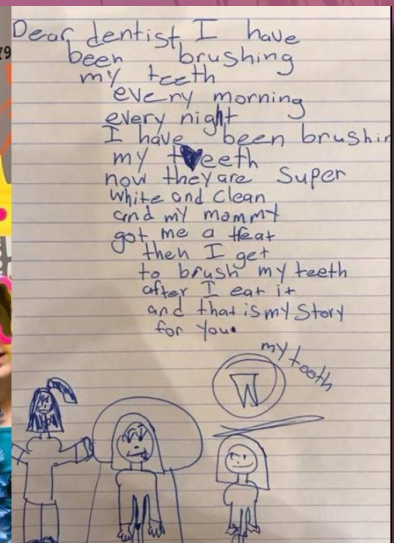 Dear dentist I have
been brushing
my teeth
every morning
every night
I have been brushin
my teeth
now they are super
white and clean
and my mommy
got me a treat
then I get
to brush my teeth
after I eat it
and that is my story
for you.
my tooth